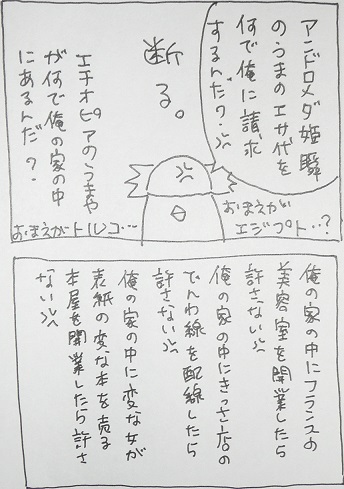 アンドロメダ姫瞬
のうまのエサ代を
何で俺に請求
するんだ？
断る。
エチオピアのうまや
が何で俺の家の中
にあるんだ？
おまえが
エジプト…？
おまえがトルコ…
俺の家の中にフランスの
美容室を開業したら
許さない
俺の家の中にきっさ店の
でんわ線を配線したら
許さない
俺の家の中に変な女が
表紙の変な本を売る
本屋を開業したら許さ
ない